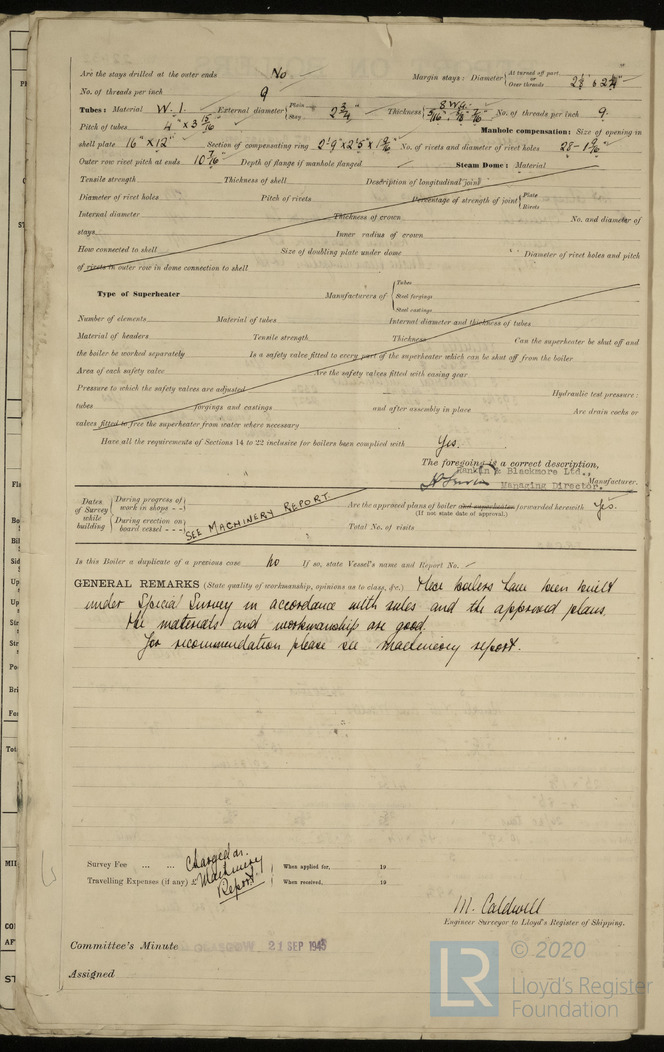 Are the stays drilled at the outer ends No Margin stays: Diameter { At turned off part or Over threads
No. of threads per inch 9
Tubes: Material W. I. External diameter { Plain Stay 2 3/4" Thickness { 8 W.G. 5/16" No. of threads per inch 9.
Pitch of tubes 4" x 3 15/16" Manhole compensation: Size of opening in
shell plate 16" x 12" Section of compensating ring 2'9" x 2'5" x 1 9/16" No. of rivets and diameter of rivet holes 28 - 1 9/16"
Outer row rivet pitch at ends 10 7/16" Depth of flange if manhole flanged Steam Dome: Material
Tensile strength Thickness of shell Description of longitudinal joint
Diameter of rivet holes Pitch of rivets Percentage of strength of joint { Plate Rivets
Internal diameter Thickness of crown No. and diameter of
stays Inner radius of crown
How connected to shell Size of doubling plate under dome Diameter of rivet holes and pitch
of rivets in outer row in dome connection to shell
Type of Superheater Manufacturers of { Tubes Steel forgings Steel castings
Number of elements Material of tubes Internal diameter and thickness of tubes
Material of headers Tensile strength Thickness Can the superheater be shut off and
the boiler be worked separately Is a safety valve fitted to every part of the superheater which can be shut off from the boiler
Area of each safety valve Are the safety valves fitted with easing gear
Pressure to which the safety valves are adjusted Hydraulic test pressure:
tubes forgings and castings and after assembly in place Are drain cocks or
valves fitted to free the superheater from water where necessary
Have all the requirements of Sections 14 to 22 inclusive for boilers been complied with Yes.
The foregoing is a correct description,
Rankin & Blackmore Ltd.,
Managing Director. Manufacturer.
Dates of Survey while building { During progress of work in shops - - During erection on board vessel - - - } SEE MACHINERY REPORT
Are the approved plans of boiler and superheater forwarded herewith Yes.
(If not state date of approval.)
Total No. of visits
Is this Boiler a duplicate of a previous case No If so, state Vessel's name and Report No. -
GENERAL REMARKS (State quality of workmanship, opinions as to class, &c.) These boilers have been built
under Special Survey in accordance with rules and the approved plans.
the materials and workmanship are good.
For recommendation please see machinery report.
Survey Fee ... ... Charged on Machinery Report. When applied for, 19
Travelling Expenses (if any) £ When received, 19
M. Caldwell
Engineer Surveyor to Lloyd's Register of Shipping.
Committee's Minute GLASGOW 21 SEP 1945
Assigned
LR © 2020
Lloyd's Register
Foundation